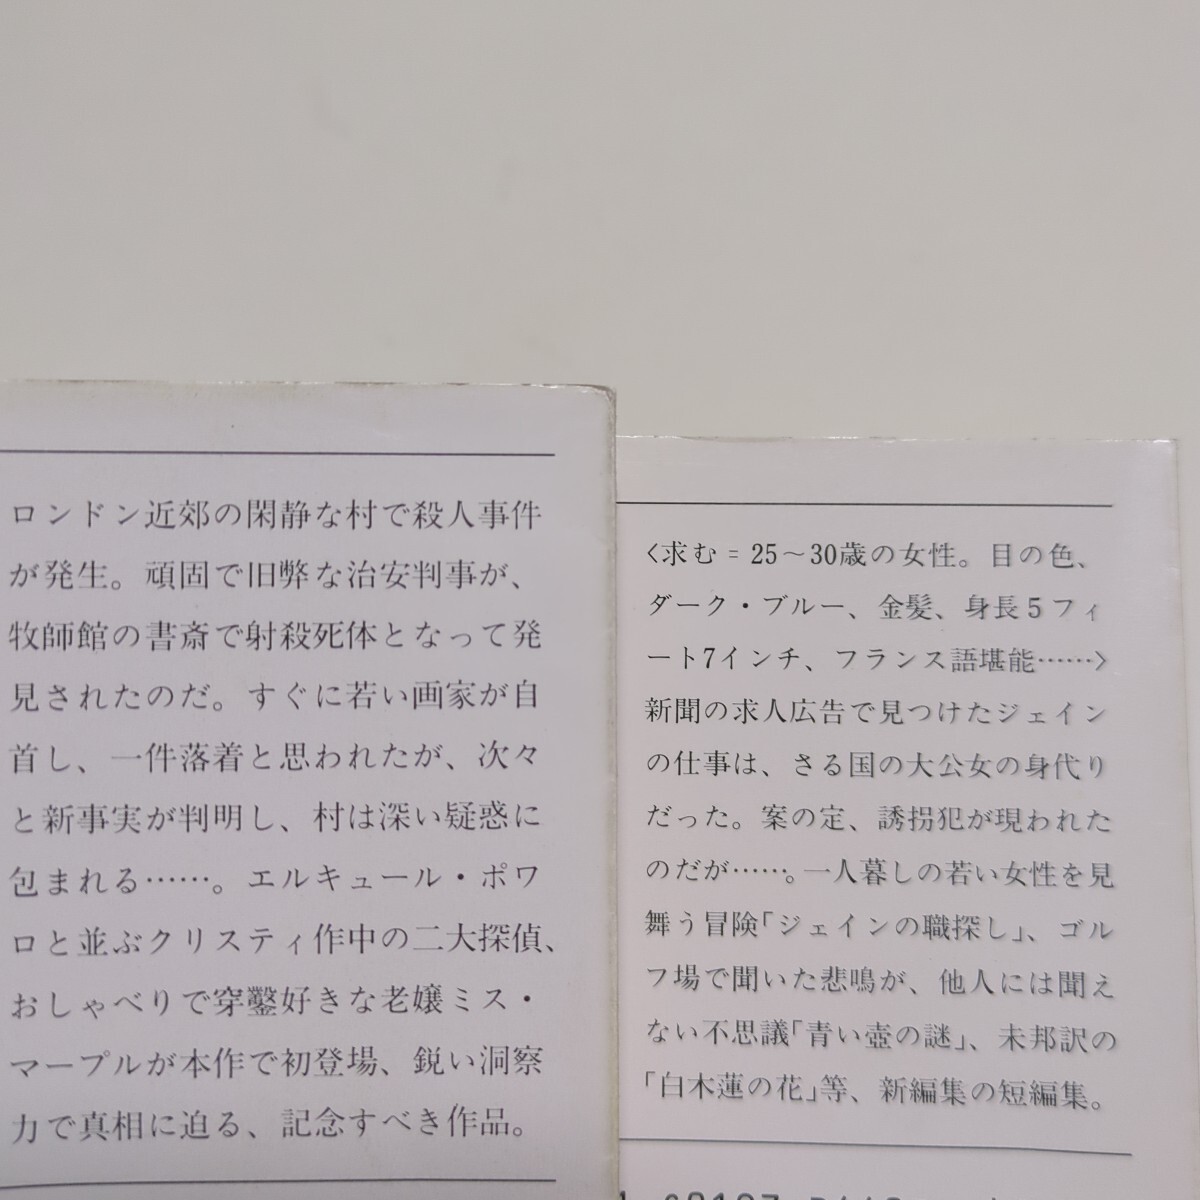 ロンドン近郊の閑静な村で殺人事件
が発生。頑固で旧弊な治安判事が、
牧師館の書斎で射殺死体となって発
見されたのだ。すぐに若い画家が自
首し、一件落着と思われたが、次々
と新事実が判明し、村は深い疑惑に
包まれる……。エルキュール・ポワ
ロと並ぶクリスティ作中の二大探偵、
おしゃべりで穿鑿好きな老嬢ミス・
マープルが本作で初登場、鋭い洞察
力で真相に迫る、記念すべき作品。
<求む＝25～30歳の女性。目の色、
ダーク・ブルー、金髪、身長5フィ
ート7インチ、フランス語堪能……>
新聞の求人広告で見つけたジェイン
の仕事は、さる国の大公女の身代り
だった。案の定、誘拐犯が現われた
のだが……。一人暮しの若い女性を見
舞う冒険「ジェインの職探し」、ゴル
フ場で聞いた悲鳴が、他人には聞え
ない不思議「青い壺の謎」、未邦訳の
「白木蓮の花」等、新編集の短編集。